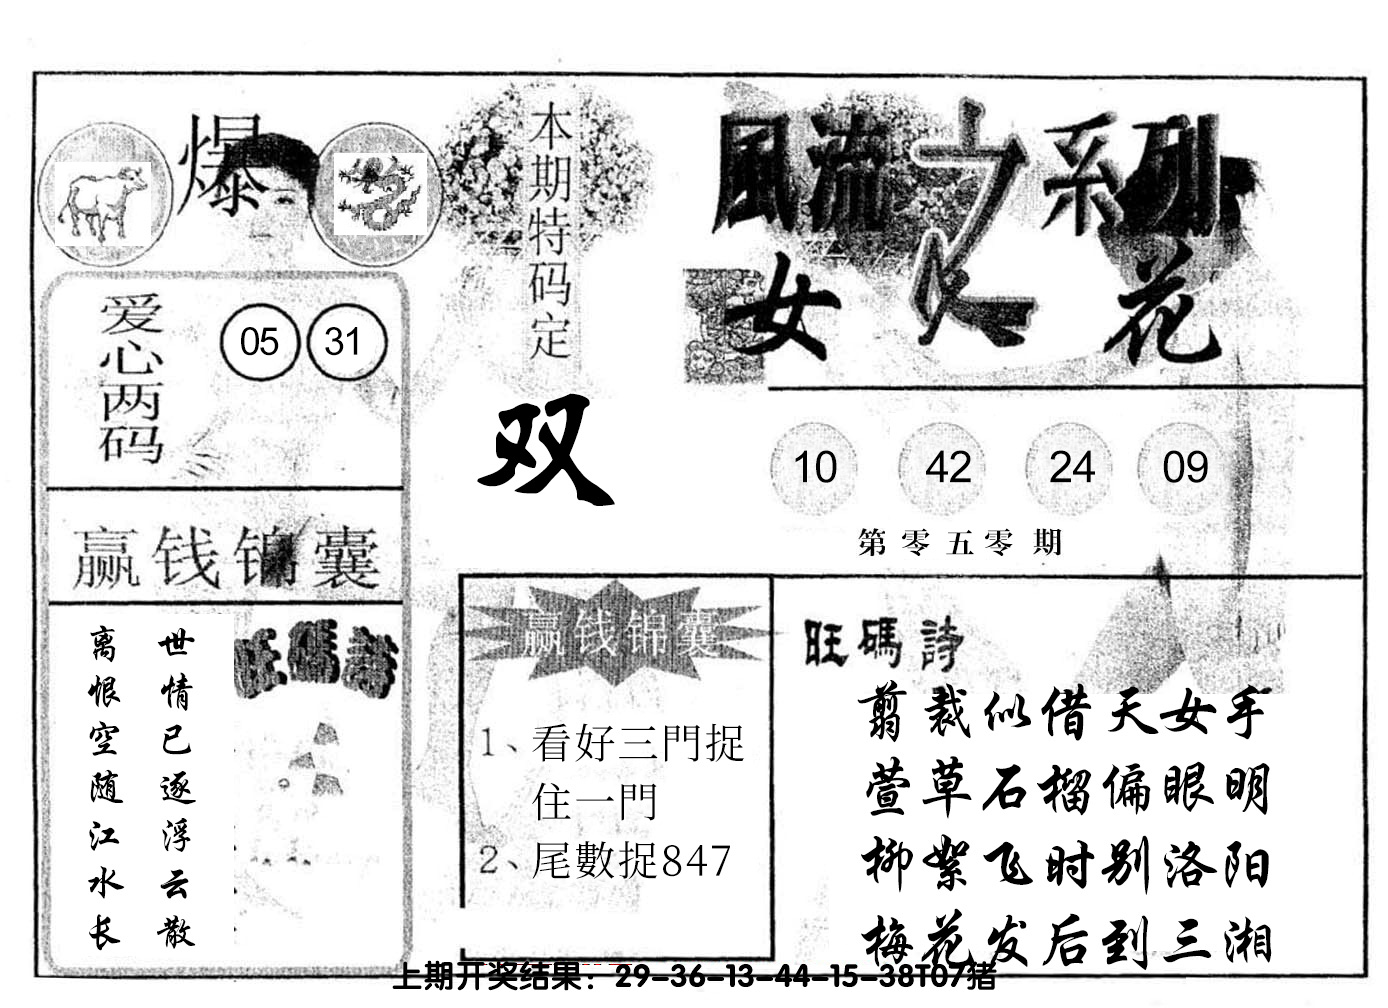 爆
本期特码定
双
爱心两码
05 31
赢钱锦囊
世情已逐浮云散
离恨空随江水长
旺碼詩
風流之系列
女人花
10 42 24 09
第零五零期
赢钱锦囊
1、看好三門捉
住一門
2、尾數捉847
旺碼詩
剪裁似借天女手
萱草石榴偏眼明
柳絮飞时别洛阳
梅花发后到三湘
上期开奖结果：29-36-13-44-15-38T07猪